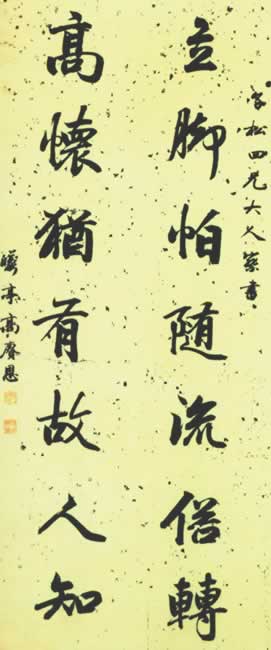 松四兄大人書
立脚怕随流俗轉
高懷猶有故人知
曦亭高賡恩